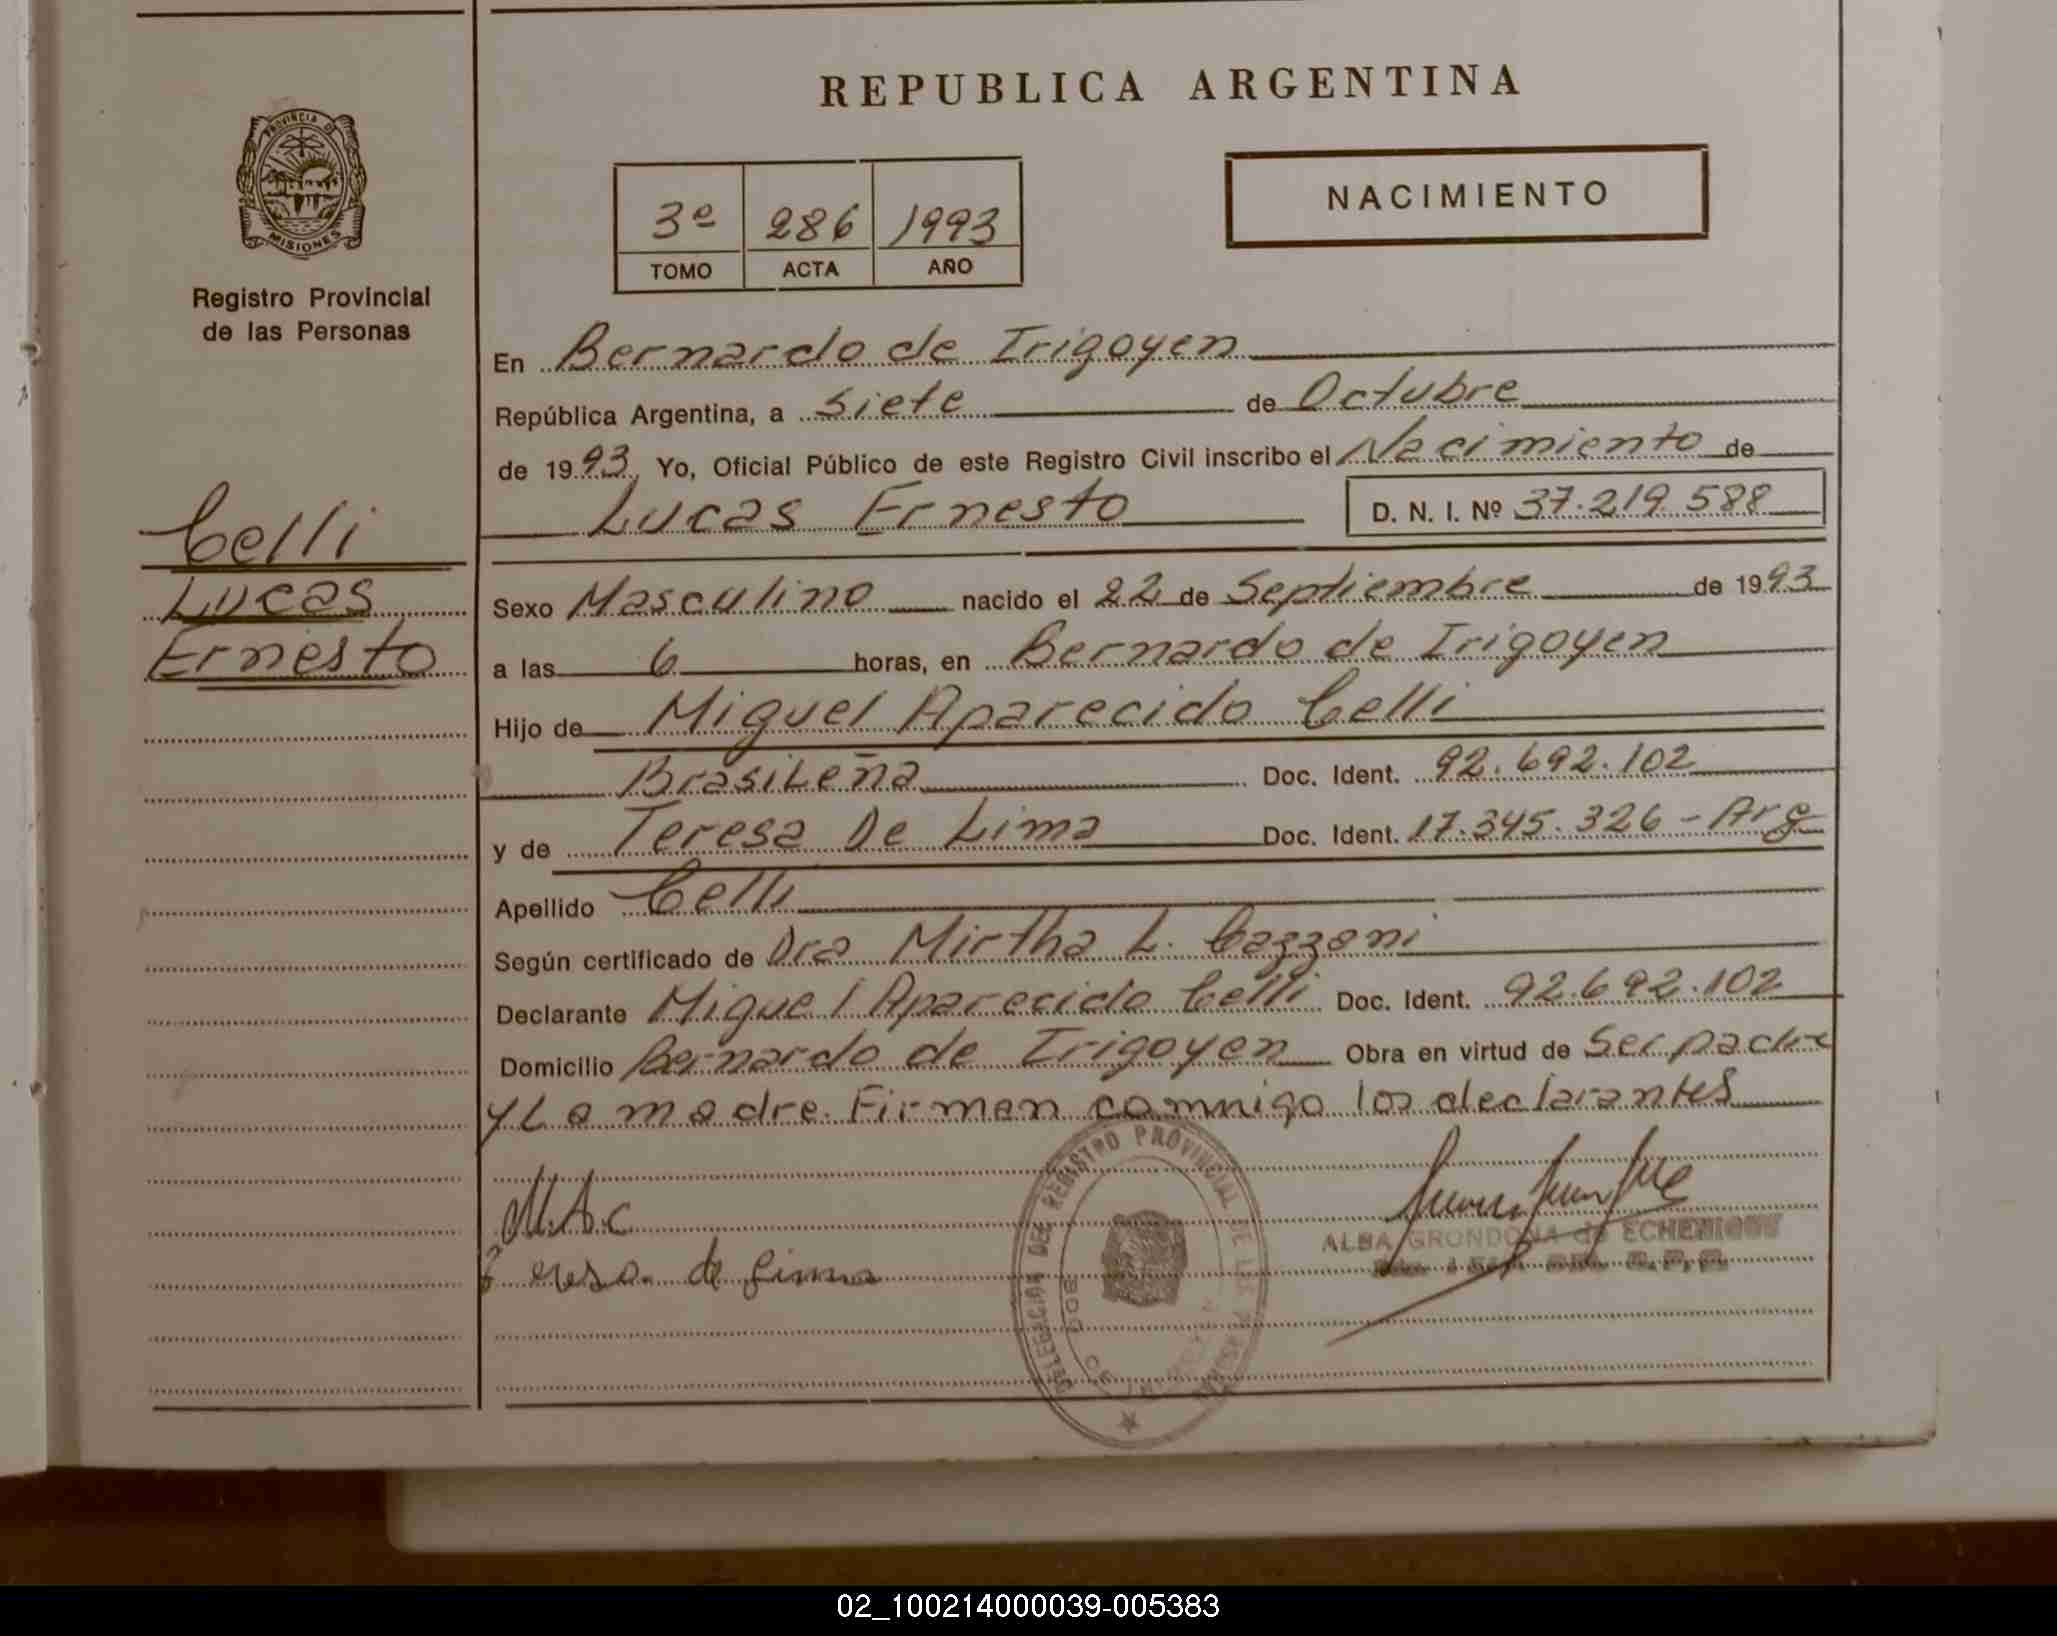 REPUBLICA ARGENTINA
PROVINCIA DE
MISIONES
Registro Provincial
de las Personas
NACIMIENTO
3º 286 1993
TOMO ACTA AÑO
En Bernardo de Irigoyen
República Argentina, a Siete de Octubre
de 1993 Yo, Oficial Público de este Registro Civil inscribo el Nacimiento de
Lucas Ernesto D. N. I. Nº 37.219.588
Celli
Lucas
Ernesto
Sexo Masculino nacido el 22 de Septiembre de 1993
a las 6 horas, en Bernardo de Irigoyen
Hijo de Miguel Aparecido Celli
Brasileña Doc. Ident. 92.692.102
y de Teresa De Lima Doc. Ident. 17.345.326 - Arg
Apellido Celli
Según certificado de Dra Mirtha L. Cazzoni
Declarante Miguel Aparecido Celli Doc. Ident. 92.692.102
Domicilio Bernardo de Irigoyen Obra en virtud de Ser padre
y La madre. Firman comnigo los declarantes
M.A.c
eresa de Lima
DELEGACION DEL REGISTRO PROVINCIAL DE LAS PERSONAS
ALBA GRONDONA de ECHENIQUE
02_100214000039-005383